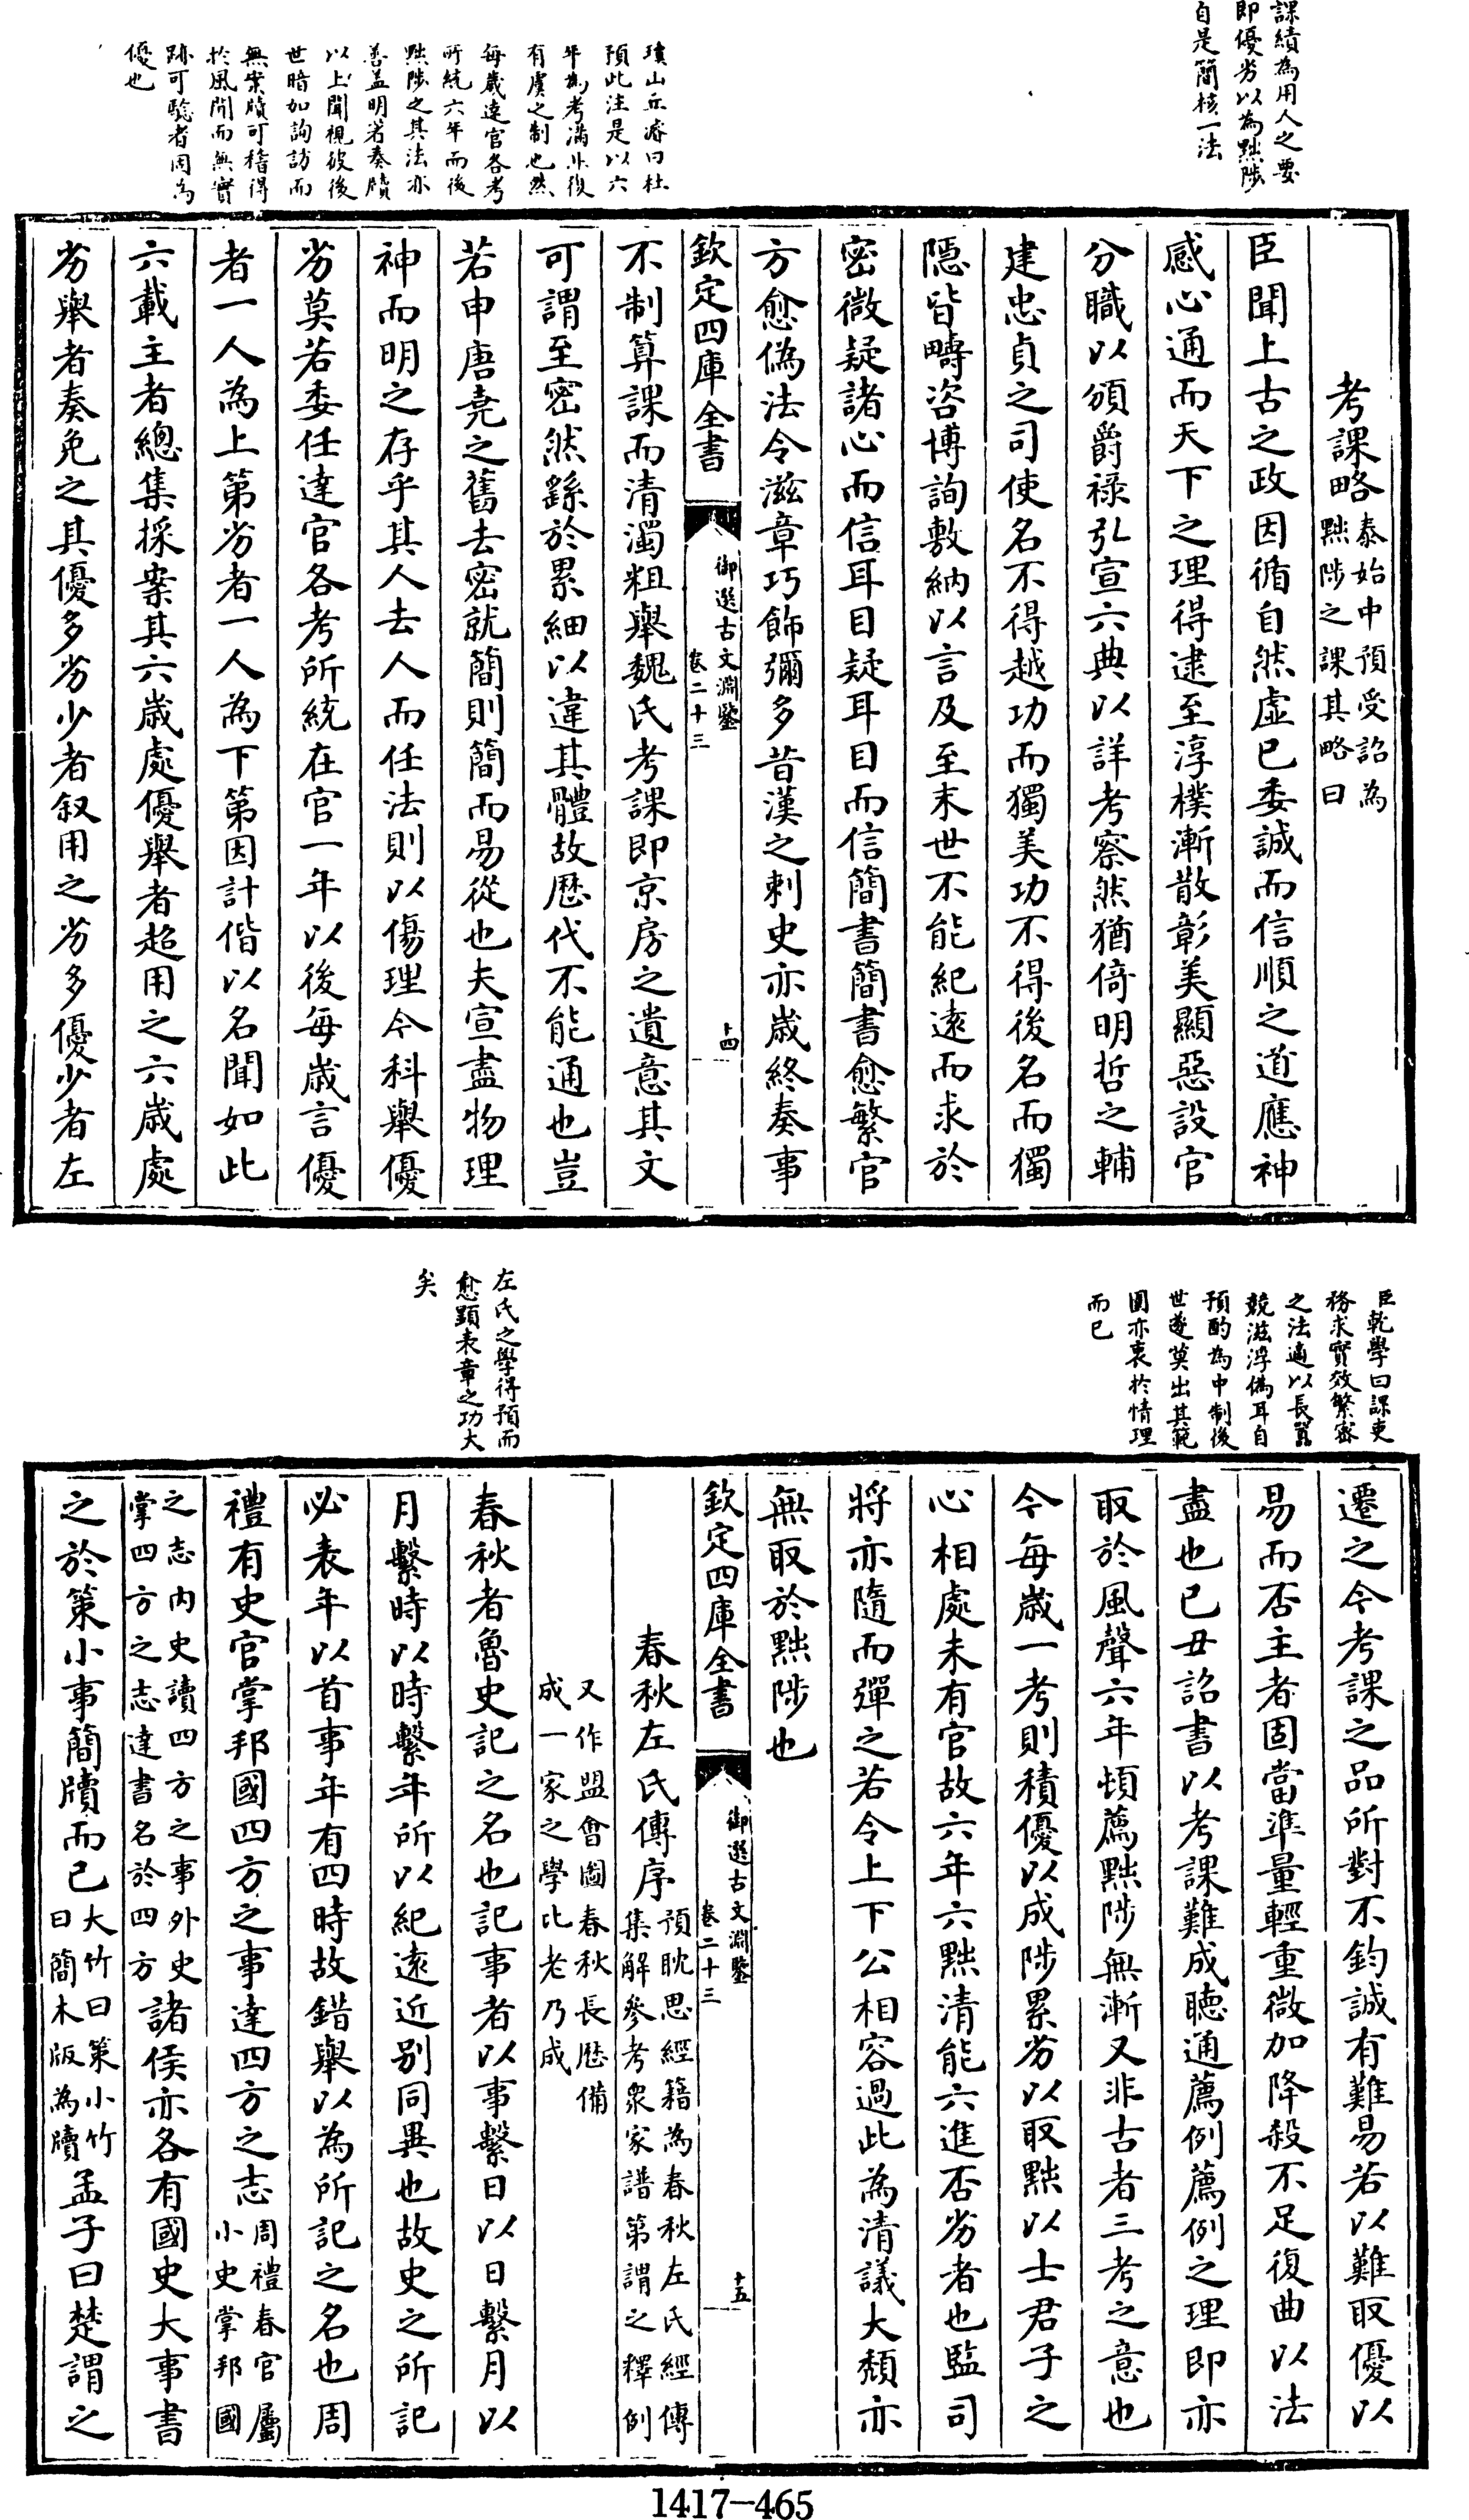 課績為用人之要
即優劣以為黜陟
自是簡核一法
瓊山丘濬曰杜
預此注是以六
年為考滿非復
有虞之制也然
每歲達官各考
所統六年而後
黜陟之其法亦
善盖明著奏牘
以上聞視彼後
世暗加詢訪而
無案牘可稽得
於風聞而無實
跡可驗者固為
優也
考課略泰始中預受詔為
黜陟之課其略曰
臣聞上古之政因循自然虛已委誠而信順之道應神
感心通而天下之理得逮至淳樸漸散彰美顯惡設官
分職以頒爵祿弘宣六典以詳考察然猶倚明哲之輔
建忠貞之司使名不得越功而獨美功不得後名而獨
隱皆疇咨博詢敷納以言及至末世不能紀遠而求於
密微疑諸心而信耳目疑耳目而信簡書簡書愈繁官
方愈偽法令滋章巧飾彌多昔漢之刺史亦歲終奏事
欽定四庫全書
御選古文淵鑒
卷二十三
十四
不制算課而清濁粗舉魏氏考課即京房之遺意其文
可謂至密然繇於累細以違其體故歷代不能通也豈
若申唐堯之舊去密就簡則簡而易從也夫宣盡物理
神而明之存乎其人去人而任法則以傷理今科舉優
劣莫若委任達官各考所統在官一年以後每歲言優
者一人為上第劣者一人為下第因計偕以名聞如此
六載主者總集採案其六歲處優舉者超用之六歲處
劣舉者奏免之其優多劣少者叙用之劣多優少者左
臣乾學曰課吏
務求實效繁密
之法適以長囂
競滋浮偽耳自
預酌為中制後
世遂莫出其範
圍亦衷於情理
而已
左氏之學得預而
愈顯表章之功大
矣
遷之今考課之品所對不鈞誠有難易若以難取優以
易而否主者固當準量輕重微加降殺不足復曲以法
盡也已丑詔書以考課難成聽通薦例薦例之理即亦
取於風聲六年頓薦黜陟無漸又非古者三考之意也
今每歲一考則積優以成陟累劣以取黜以士君子之
心相處未有官故六年六黜清能六進否劣者也監司
將亦隨而彈之若令上下公相容過此為清議大頹亦
無取於黜陟也
欽定四庫全書
御選古文淵鑒
卷二十三
十五
春秋左氏傳序預耽思經籍為春秋左氏經傳
集解參考衆家譜第謂之釋例
又作盟會圖春秋長歷備
成一家之學比老乃成
春秋者魯史記之名也記事者以事繫日以日繫月以
月繫時以時繫年所以紀遠近别同異也故史之所記
必表年以首事年有四時故錯舉以為所記之名也周
禮有史官掌邦國四方之事達四方之志周禮春官屬
小史掌邦國
之志内史讀四方之事外史
掌四方之志達書名於四方諸侯亦各有國史大事書
之於策小事簡牘而已大竹曰策小竹
曰簡木版為牘孟子曰楚謂之
1417-465